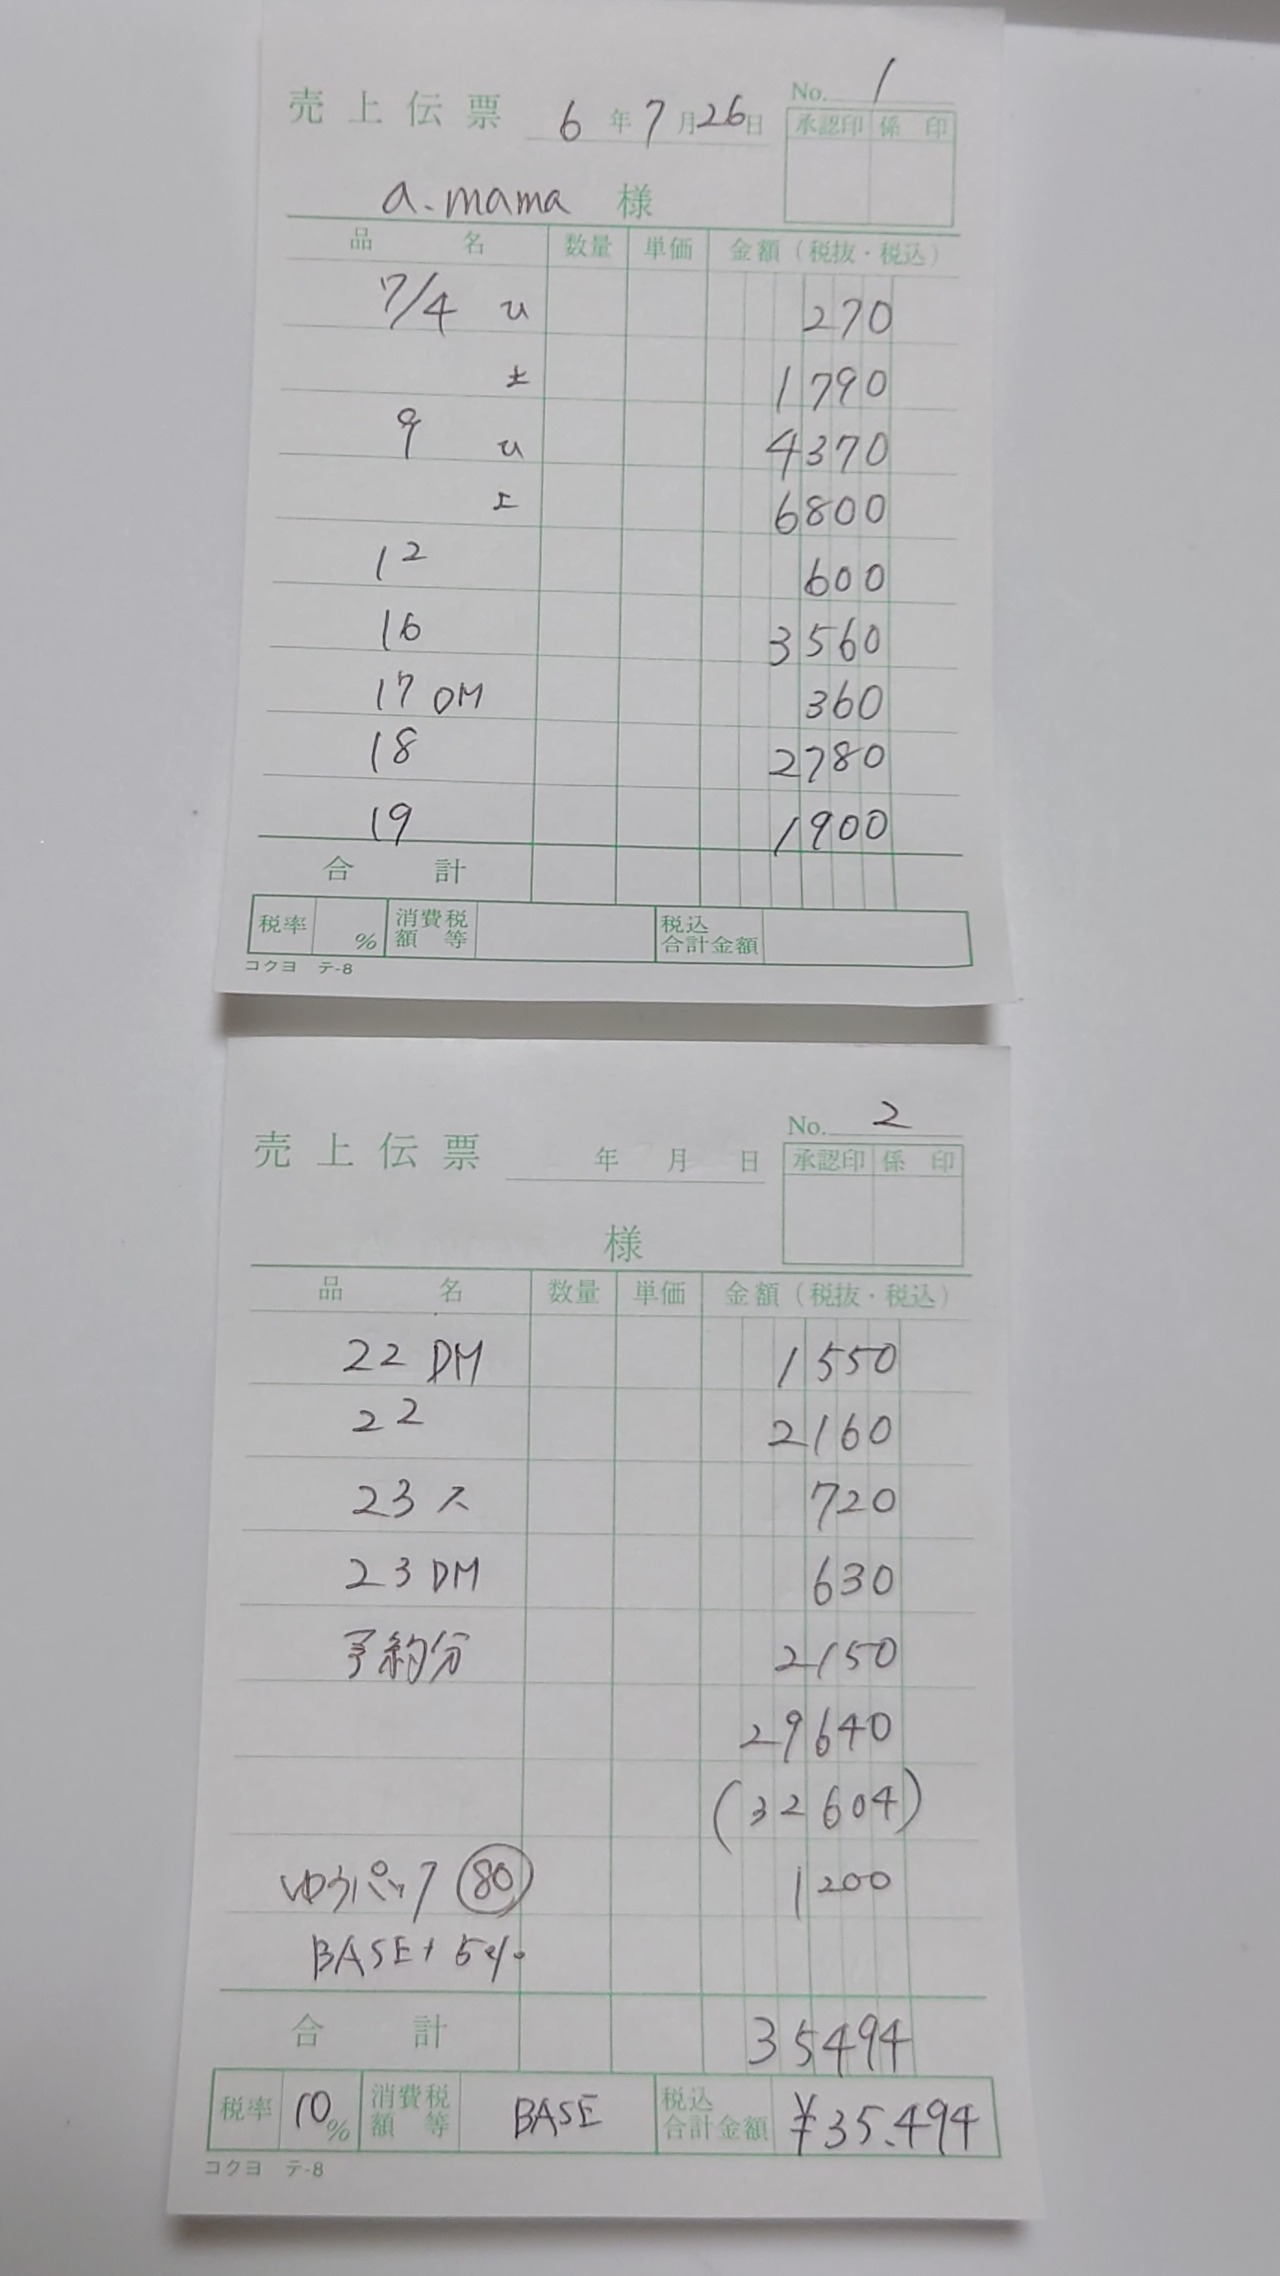 No. 1
売上伝票 6年7月26日
承認印 係印
a.mama 様
品名 数量 単価 金額(税抜・税込)
7/4 u 270
1790
9 u 4370
6800
12 600
16 3560
17 DM 360
18 2780
19 1900
合計
税率 % 消費税額等 税込合計金額
コクヨ テ-8
No. 2
売上伝票 年 月 日
承認印 係印
様
品名 数量 単価 金額(税抜・税込)
22 DM 1550
22 2160
23 ス 720
23 DM 630
予約分 2150
29640
(32604)
ゆうパック 80 1200
BASE+5%
合計 35494
税率 10% 消費税額等 BASE 税込合計金額 ¥35.494
コクヨ テ-8